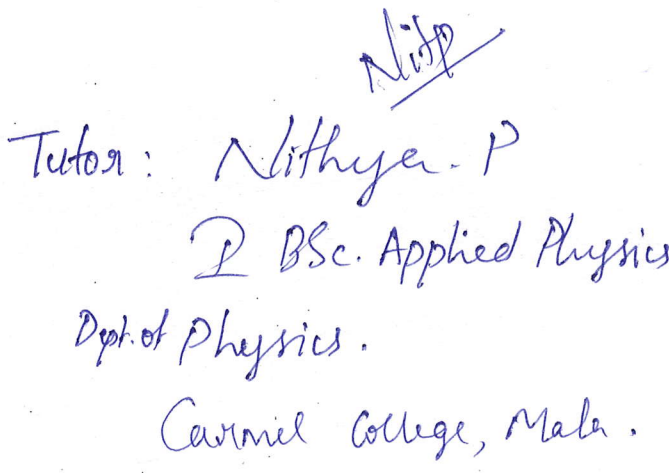 Tutor: Nithya. P
I BSc. Applied Physics
Dept. of Physics.
Carmel College, Mala.